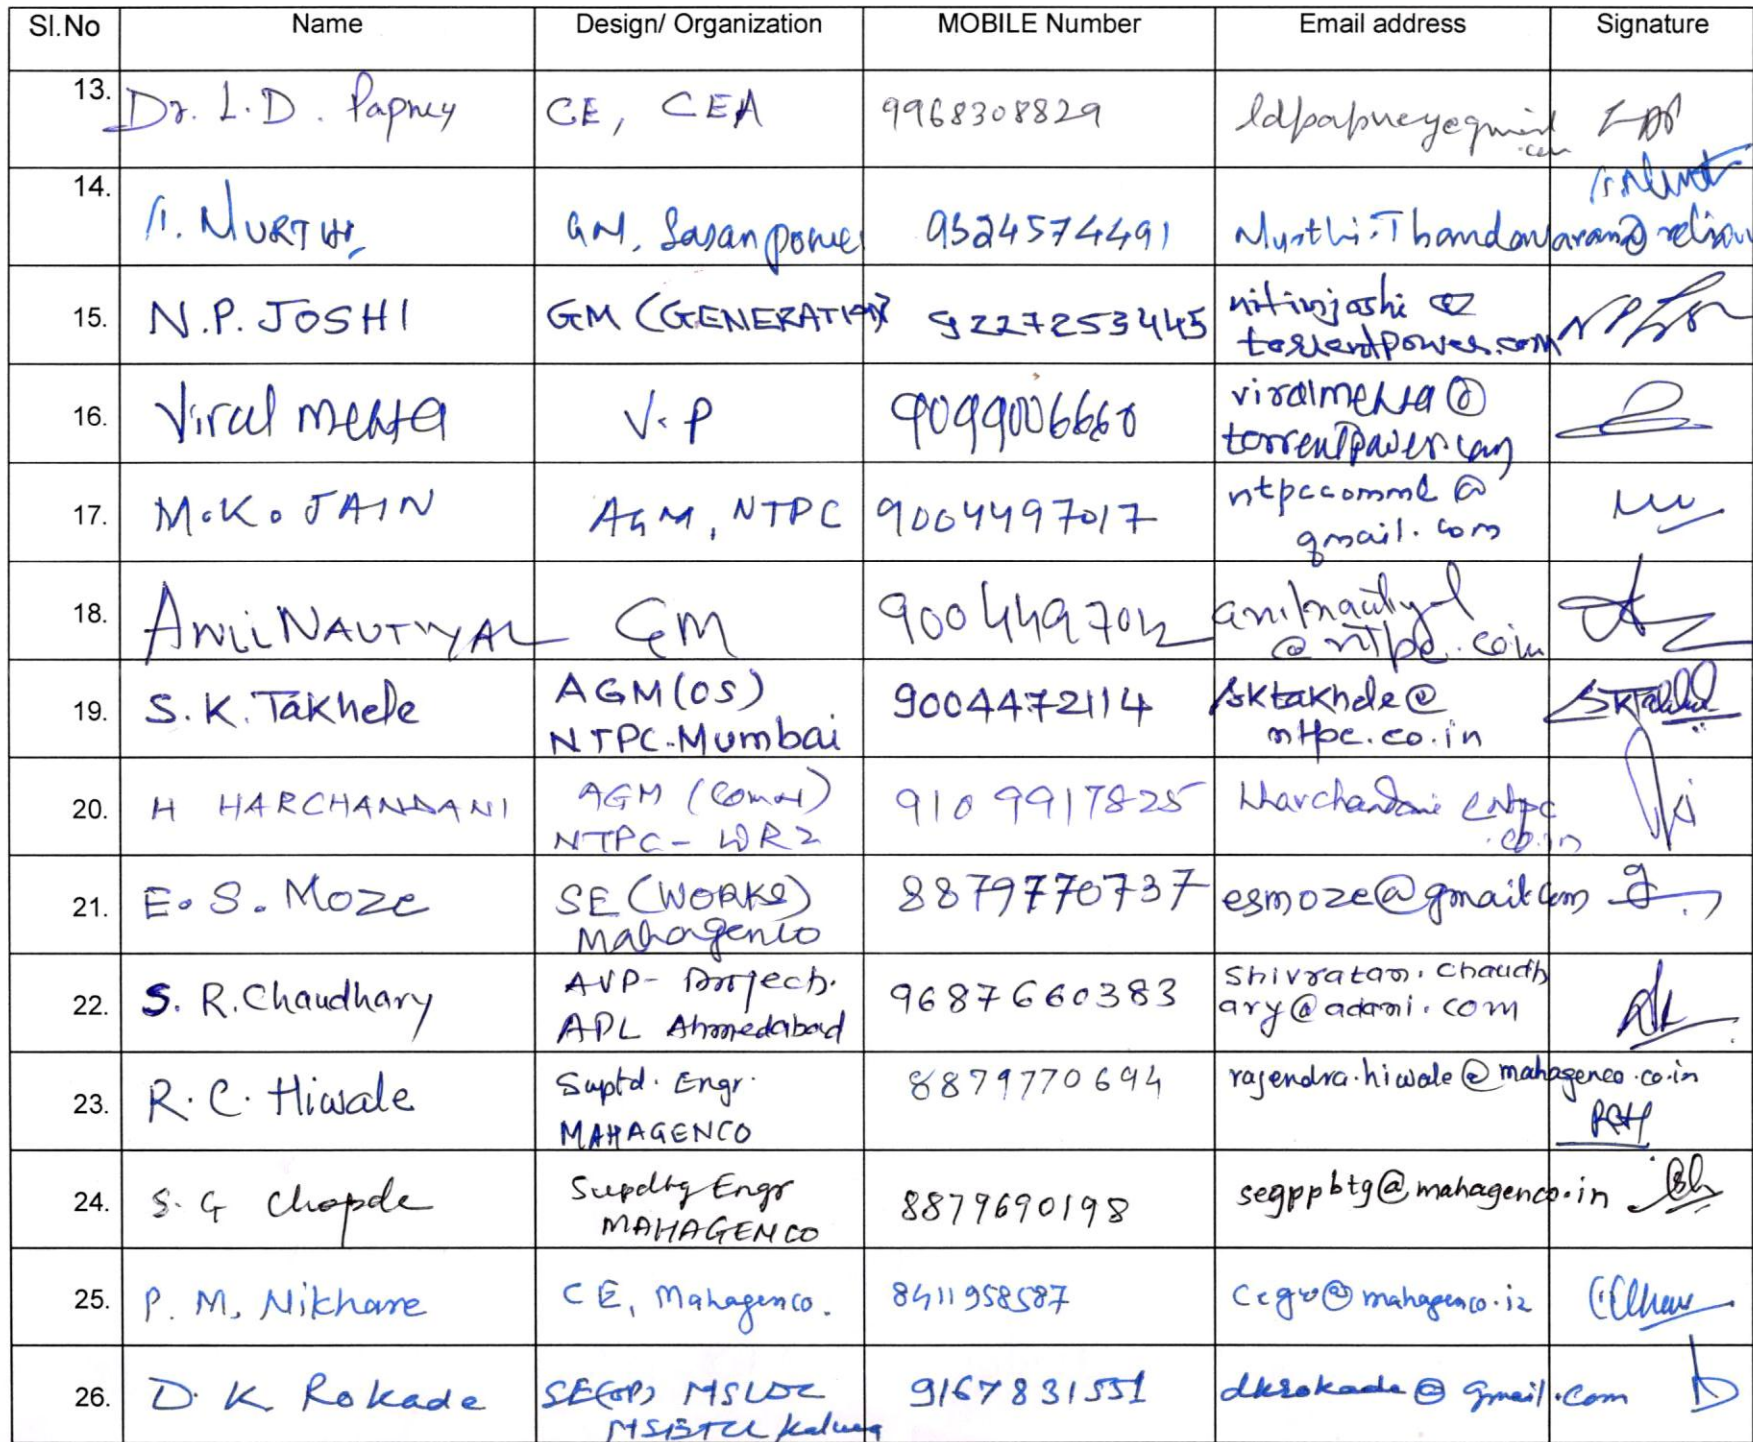 Sl.No Name Design/ Organization MOBILE Number Email address Signature
13. Dr. L.D. Papney CE, CEA 9968308829 ldpapney@gmail
.com
14. T. MURTHI, GM, Sasan power 9324574491 Murthi.Thandavaran@relian
15. N.P. JOSHI GM (GENERATION) 9227253445 nitinjoshi @
torrentpower.com
16. Viral mehta V.P 9099006660 viralmehta @
torrentpower.com
17. M.K. JAIN AGM, NTPC 9004497017 ntpccomml @
gmail.com
18. ANIL NAUTIYAL GM 9004497012 anilnautiyal
@ntpc.co.in
19. S.K. Takhele AGM(OS) 9004472114 sktakhele@
NTPC-Mumbai ntpc.co.in
20. H HARCHANDANI AGM (Comml) 9109917825 hharchandani@ntpc
NTPC-WR2 .co.in
21. E.S. Moze SE (WORKS) 8879770737 esmoze@gmail.com
Mahagenco
22. S. R. Chaudhary AVP- Project. 9687660383 Shivratan.chaudh
APL Ahmedabad ary@adani.com
23. R.C. Hiwale Suptd. Engr. 8879770694 rajendra.hiwale@mahagenco.co.in
MAHAGENCO RCH
24. S. G Chopde Supdtg Engr 8879690198 segppbtg@mahagenco.in
MAHAGENCO
25. P. M. Nikhare CE, Mahagenco. 8411958587 cego@mahagenco.in
26. D. K. Rokade SE(OP) MSLDC 9167831551 dkrokade@gmail.com
MSETCL Kalwa